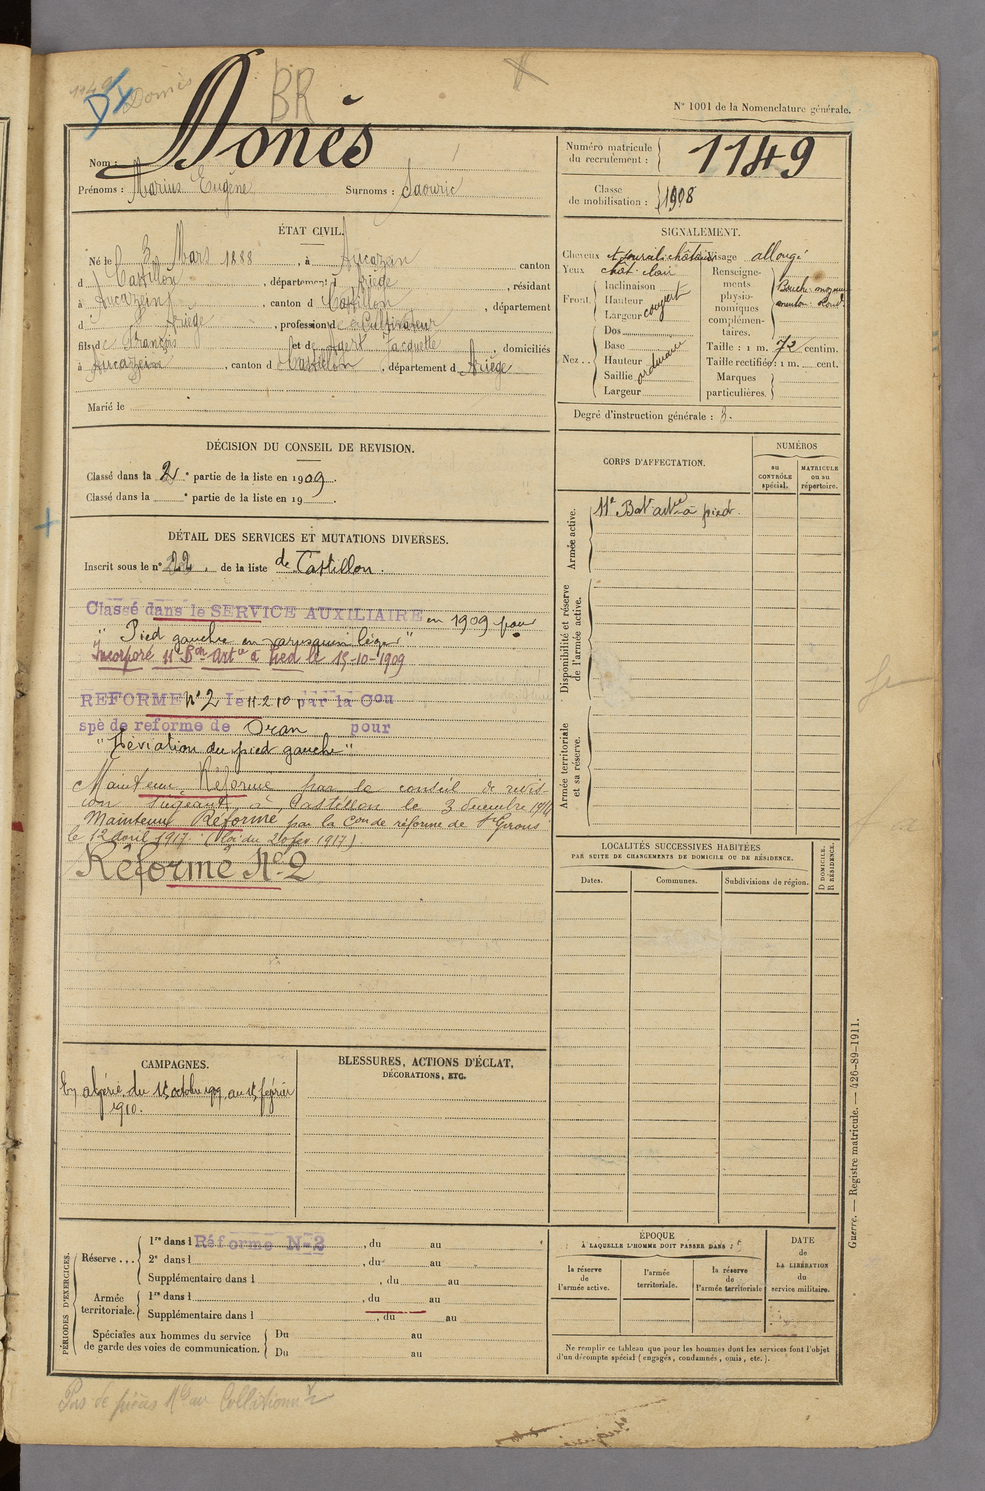 1149
Domès
BR
N° 1001 de la Nomenclature générale.
Nom : Donès
Prénoms : Marius Eugène Surnoms : Saouric
Numéro matricule du recrutement : 1149
Classe de mobilisation : 1908
ÉTAT CIVIL.
Né le 3 Mars 1888, à Aucazein canton
d Castillon, département d Ariège, résidant
à Aucazein, canton d Castillon, département
d Ariège, profession de Cultivateur
fils de François et de Agert Jacquette, domiciliés
à Aucazein, canton d Castillon, département d Ariège
Marié le
SIGNALEMENT.
Cheveux et sourcils châtains Visage allongé
Yeux chât. clair
Front. Inclinaison
Hauteur couvert
Largeur
Nez. Dos
Base
Hauteur ordinaire
Saillie
Largeur
Renseignements physionomiques complémentaires. Bouche moyenne menton rond
Taille : 1 m. 72 centim.
Taille rectifiée : 1 m. cent.
Marques particulières.
Degré d'instruction générale : 3.
DÉCISION DU CONSEIL DE REVISION.
Classé dans la 2e partie de la liste en 1909.
Classé dans la e partie de la liste en 19
DÉTAIL DES SERVICES ET MUTATIONS DIVERSES.
Inscrit sous le n° 22. de la liste de Castillon.
Classé dans le SERVICE AUXILIAIRE en 1909 pour
" Pied gauche en varusquin léger "
Incorporé 11e Bon Artie à Pied le 15-10-1909
REFORME N° 2 le 11 2 10 par la Con
spé de reforme de Oran pour
"Déviation du pied gauche"
Maintenu Réformé par le conseil de revis-
ion siégeant à Castillon le 3 décembre 1914
Maintenu Réformé par la Con de réforme de St Girons
le 12 avril 1917. (Loi du 20 fev 1917)
Réformé No 2
CORPS D'AFFECTATION.
NUMÉROS
au CONTRÔLE spécial.
MATRICULE ou au répertoire.
Armée active.
11e Bat artie à pied.
Disponibilité et réserve de l'armée active.
Armée territoriale et sa réserve.
LOCALITÉS SUCCESSIVES HABITÉES
PAR SUITE DE CHANGEMENTS DE DOMICILE OU DE RÉSIDENCE.
Dates. Communes. Subdivisions de région.
D DOMICILE. R RÉSIDENCE.
CAMPAGNES.
En algérie du 15 octobre 1909 au 15 février
1910.
BLESSURES, ACTIONS D'ÉCLAT,
DÉCORATIONS, ETC.
PÉRIODES D'EXERCICES.
Réserve ... 1re dans l Réformé N-2, du au
2e dans l, du au
Supplémentaire dans l, du au
Armée territoriale. 1re dans l, du au
Supplémentaire dans l, du au
Spéciales aux hommes du service de garde des voies de communication. Du au
Du au
ÉPOQUE
À LAQUELLE L'HOMME DOIT PASSER DANS :
la réserve de l'armée active.
l'armée territoriale.
la réserve de l'armée territoriale
DATE de LA LIBÉRATION du service militaire.
Ne remplir ce tableau que pour les hommes dont les services font l'objet
d'un décompte spécial (engagés, condamnés, omis, etc.).
Guerre. — Registre matricule. — 426-89-1911.
Pas de pièces